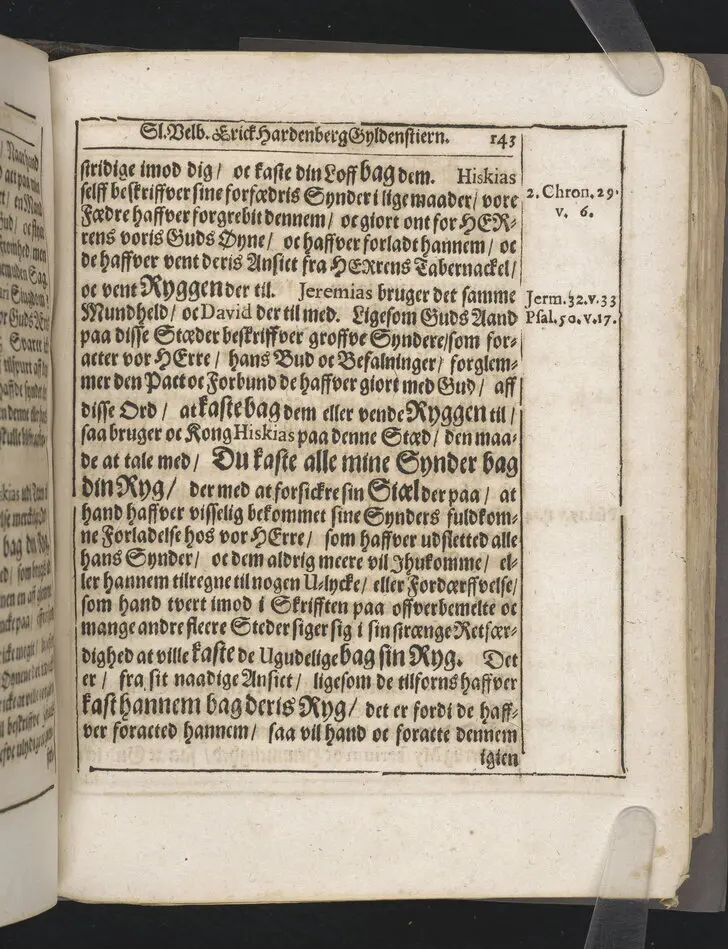 Sl. Velb. Erick Hardenberg Gyldenstiern. 143
stridige imod dig/ oc kaste din Loff bag dem. Hiskias
selff beskriffver sine forfædris Synder i lige maader/ vore
Fædre haffver forgrebit dennem/ oc giort ont for HER-
rens voris Guds Øyne/ oc haffver forladt hannem/ oc
de haffver vent deris Ansict fra HErrens Tabernackel/
oc vent Ryggen der til. Jeremias bruger det samme
Mundheld/ oc David der til med. Ligesom Guds Aand
paa disse Stæder beskriffver groffve Syndere/ som for-
acter vor HErre/ hans Bud oc Befalninger/ forglem-
mer den Pact oc Forbund de haffver giort med Gud/ aff
disse Ord/ at kaste bag dem eller vende Ryggen til/
saa bruger oc Kong Hiskias paa denne Stæd/ den maa-
de at tale med/ Du kaste alle mine Synder bag
din Ryg/ der med at forsickre sin Siæl der paa/ at
hand haffver visselig bekommet sine Synders fuldkom-
ne Forladelse hos vor HErre/ som haffver udsletted alle
hans Synder/ oc dem aldrig meere vil Ihukomme/ el-
ler hannem tilregne til nogen U-lycke/ eller Fordærffvelse/
som hand tvert imod i Skrifften paa offverbemelte oc
mange andre fleere Steder siger sig i sin strænge Retfær-
dighed at ville kaste de Ugudelige bag sin Ryg. Det
er/ fra sit naadige Ansict/ ligesom de tilforns haffver
kast hannem bag deris Ryg/ det er fordi de haff-
ver foracted hannem/ saa vil hand oc foracte dennem
igien
2. Chron. 29.
v. 6.
Jerm. 32. v. 33
Psal. 50. v. 17.